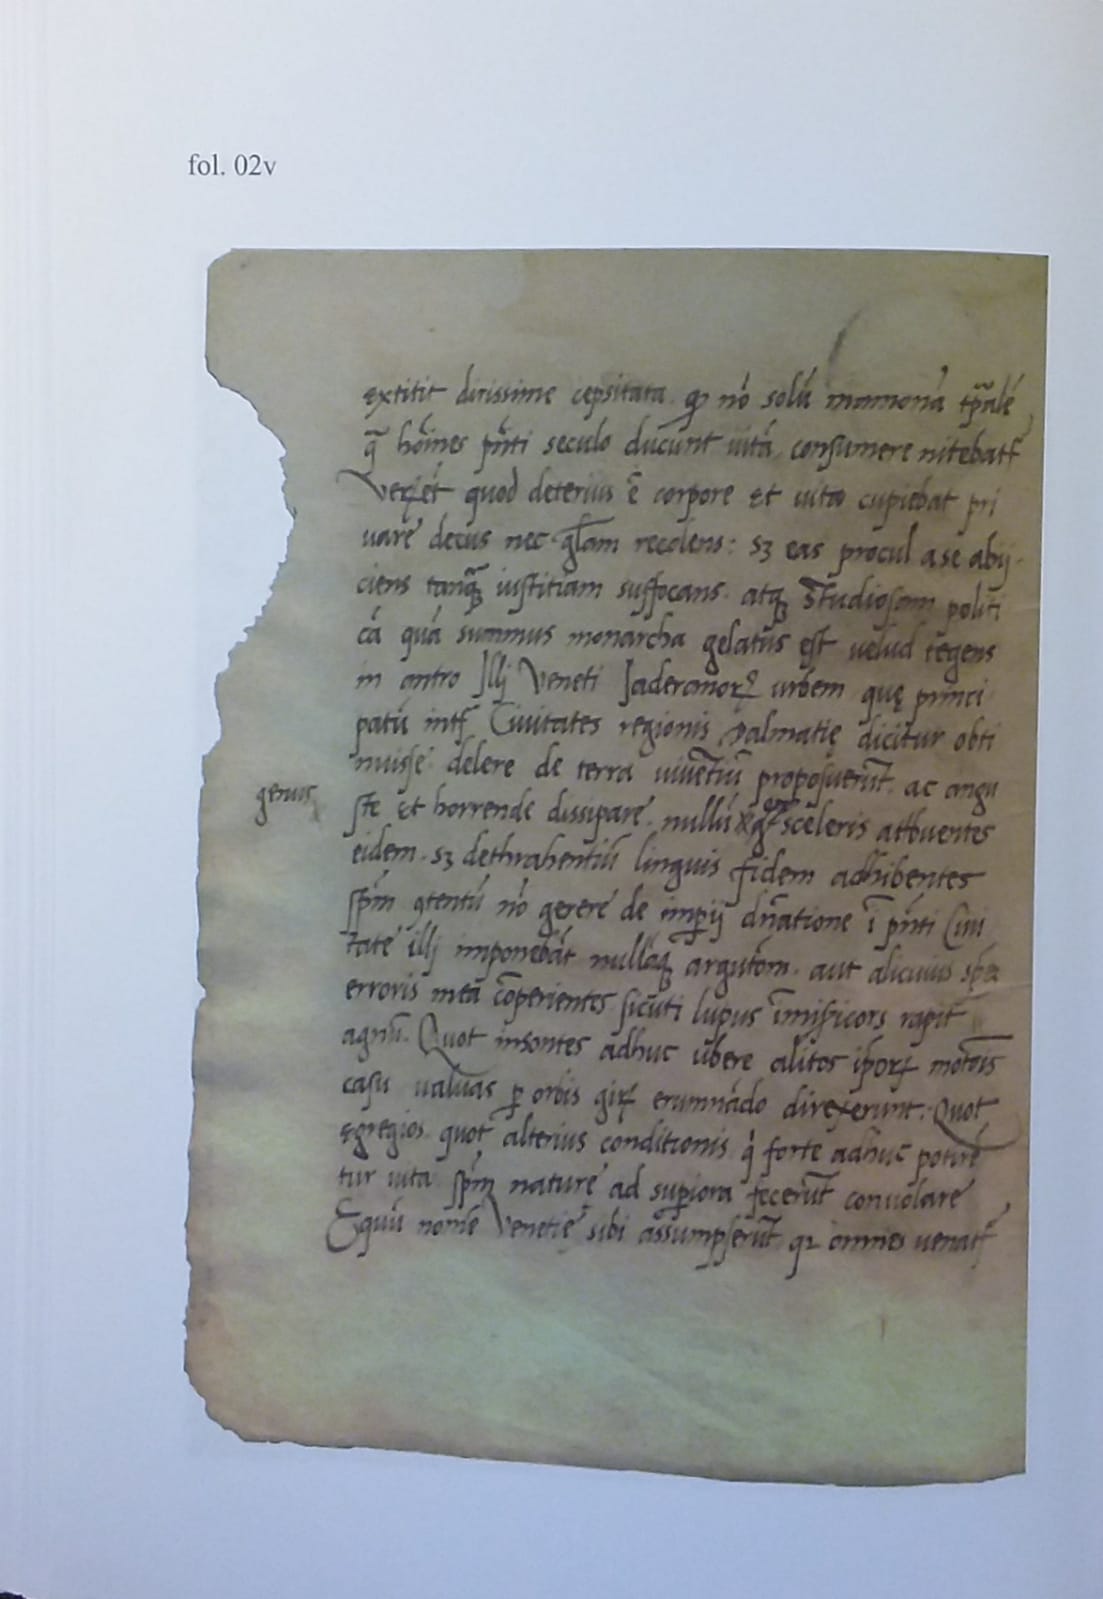 fol. 02v
extitit dirissime cepsitata. qꝫ nō solū mamonā tp̄alē
q̄ hoīnes pn̄ti seculo ducunt uitā, consumere nitebatᷓ
Veꝝet quod deterius ē corpore et uita cupiebat pri
uare decus nec gl̄am recolens: sꝫ eas procul a se abij
ciens tanqꝫ iustitiam suffocans. atqꝫ studiosam politi
cā quā summus monarcha gelatus est uelud regens
in antro Illj Veneti Jaderanoꝝ urbem quę princi
patū int̄ Ciuitates regionis Dalmatię dicitur obti
nuisse delere de terra uiuētiū proposuerūt. ac angu
genus
ste et horrende dissipare. nullū sceleris attbuentes
eidem. sꝫ dethrahentiū linguis fidem adhibentes
sp̄m ꝯtentū nō gerere de imꝑij dn̄atione ī pn̄ti Ciui
tate illj imponebāt nullāqꝫ argutōm. aut alicuius
erroris metā cōperientes sicuti lupus īmisicors rapit
agnū. Quot insontes adhuc ubere alitos ipoꝝ
casu ualuas ꝑ orbis giꝝ erumnādo direxerunt. Quot
egregios quot alterius conditionis q̇ forte adhuc potire
tur uita sp̄m nature ad suꝑiora fecerūt conuolare
Equū nomē Venetie sibi assumpserūt qꝫ omnes uenatᷓ